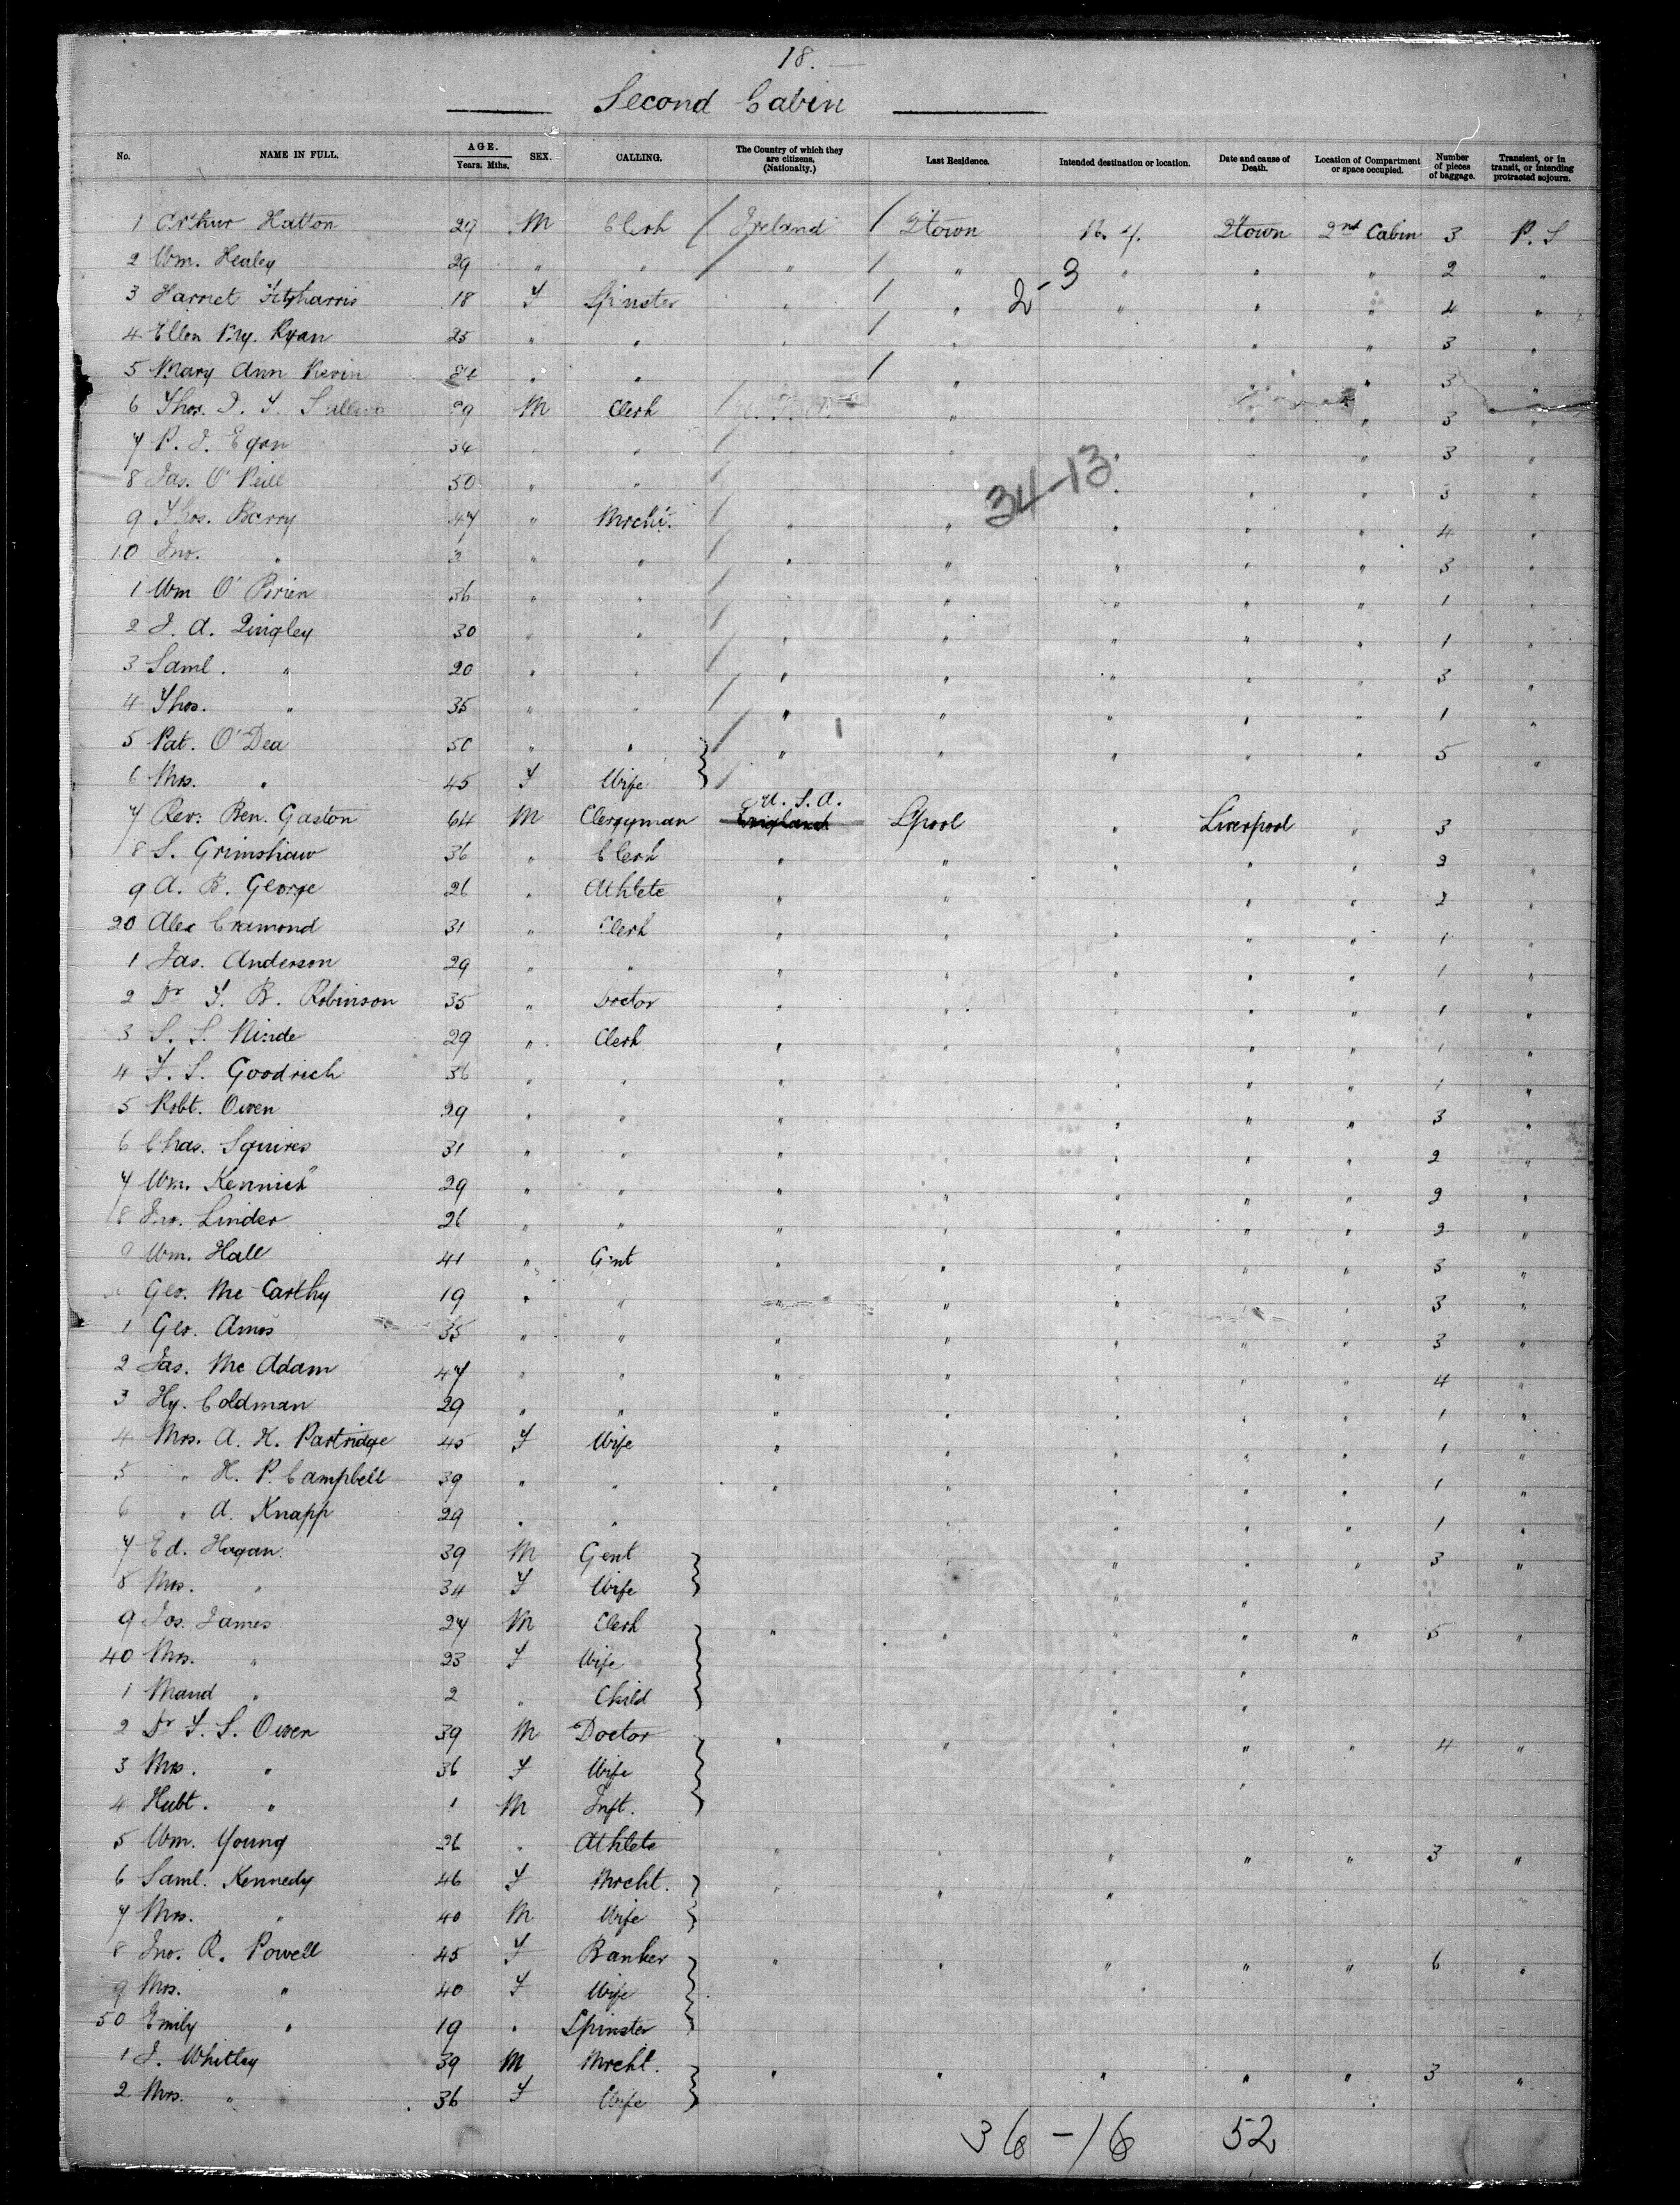 18.
Second Cabin
No. NAME IN FULL. AGE. Years. Mths. SEX. CALLING. The Country of which they are citizens. (Nationality.) Last Residence. Intended destination or location. Date and cause of Death. Location of Compartment or space occupied. Number of pieces of baggage. Transient, or in transit, or intending protracted sojourn.
1 Arthur Hatton 29 M Clerk / Ireland / Qtown N. Y. Qtown 2nd Cabin 3 P. S
2 Wm. Healey 29 " " / " / " " " " 2 "
2 - 3
3 Harriet Fitzharris 18 F Spinster " / " " " " 4 "
4 Ellen My. Ryan 25 " " " / " " " 3 "
5 Mary Ann Kevin " " / " " " 3 "
6 Thos. 29 M Clerk / U. S. A. " " " 3 "
7 P. J. Egan 34 " " / " " " 3 "
34-13
8 Jas. O'Neill 50 " " / " " " 3 "
9 Thos. Barry 47 " Mrcht. / " " " " " 4 "
10 Jno. " " " / " " " " " 3 "
1 Wm O'Brien 36 " " / " " " " 1 "
2 J. A. Quigley 30 " " / " " " " " 1 "
3 Saml. " 20 " " / " " " " " 3 "
4 Thos. " 35 " " / " " " " " 1 "
5 Pat. O'Dea 50 " " } / " 1 " " " " 5 "
6 Mrs. " 45 F Wife /
7 Rev. Ben. Gaston 64 M Clergyman U. S. A. England Lpool " Liverpool " 3
8 S. Grimshaw 36 " Clerk " " " " " 2 "
9 A. B. George 26 " Athlete " " " " " 2 "
20 Alex Cramond 31 " Clerk " " " " " 1 "
1 Jas. Anderson 29 " " " " " " " 1 "
2 Dr F. B. Robinson 35 " Doctor " " " " " 1 "
3 S. S. Ninde 29 " Clerk " " " " " 1 "
4 F. S. Goodrich 36 " " " " " " " 1 "
5 Robt. Owen 29 " " " " " " " 3 "
6 Chas. Squires 31 " " " " " " 2 "
7 Wm. Kennick 29 " " " " " " " 2 "
8 Jno. Linder 26 " " " " " " " 2 "
9 Wm. Hall 41 " Gent " " " " " 3 "
30 Geo. Mc Carthy 19 " " " " " " " 3 "
1 Geo. Amos 35 " " " " " " " 3 "
2 Jas. Mc Adam 47 " " " " " " " 4 "
3 Hy. Coldman 29 " " " " " " " 1 "
4 Mrs. A. H. Partridge 45 F Wife " " " " " 1 "
5 " H. P. Campbell 39 " " " " " " " 1 "
6 " A. Knapp 29 " " " " " " 1 "
7 Ed. Hogan 39 M Gent } " " " 3 "
8 Mrs. " 34 F Wife " "
9 Jos. James 24 M Clerk } " " " " " 5 "
40 Mrs. " 23 F Wife " "
1 Maud " 2 " Child " "
2 Dr F. S. Owen 39 M Doctor } " " " " " 4 "
3 Mrs. " 36 F Wife " "
4 Hubt. " 1 M Inft.
5 Wm. Young 26 " Athlete " " " " " 3 "
6 Saml. Kennedy 46 F Mrcht. } " " "
7 Mrs. " 40 M Wife
8 Jno. R. Powell 45 F Banker } " " " " " 6 "
9 Mrs. " 40 F Wife
50 Emily " 19 " Spinster
1 J. Whitley 39 M Mrcht. } " " " " " 3 "
2 Mrs. " 36 F Wife
36 - 16 52